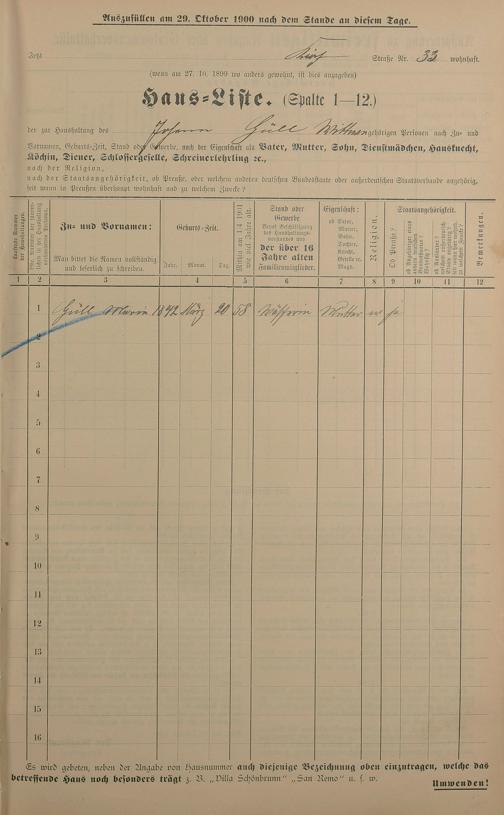 Auszufüllen am 29. Oktober 1900 nach dem Stande an diesem Tage.
Straße Nr. 33 wohnhaft.
(wenn am 27. 10. 1899 wo anders gewohnt, ist dies anzugeben)
Haus-Liste. (Spalte 1—12.)
der zur Haushaltung des Johann Güll Witwe gehörigen Personen nach Zu- und
Vornamen, Geburts-Zeit, Stand oder Gewerbe, auch der Eigenschaft als Vater, Mutter, Sohn, Dienstmädchen, Hausknecht,
Köchin, Diener, Schlossergeselle, Schreinerlehrling ec.,
nach der Religion,
nach der Staatsangehörigkeit, ob Preuße, oder welchem anderen deutschen Bundesstaate oder außerdeutschen Staatsverbande angehörig,
seit wann in Preußen überhaupt wohnhaft und zu welchem Zwecke?
Zu- und Vornamen:
Man bittet die Namen vollständig
und leserlich zu schreiben.
Geburts-Zeit.
Jahr. Monat. Tag.
Stand oder
Gewerbe
der über 16
Jahre alten
Familienmitglieder.
Eigenschaft:
ob Vater,
Mutter,
Sohn,
Tochter,
Knecht,
Geselle ec.
Magd.
Religion.
Staatsangehörigkeit.
Ob Preuße?
Bemerkungen.
1 2 3 4 5 6 7 8 9 10 11 12
1 Güll Maria 1842 März 20 58 Wäscherin Mutter ja
2
3
4
5
6
7
8
9
10
11
12
13
14
15
16
Es wird gebeten, neben der Angabe von Hausnummer auch diejenige Bezeichnung oben einzutragen, welche das
betreffende Haus noch besonders trägt z. B. „Villa Schönbrunn“ „San Remo“ u. s. w.
Umwenden!